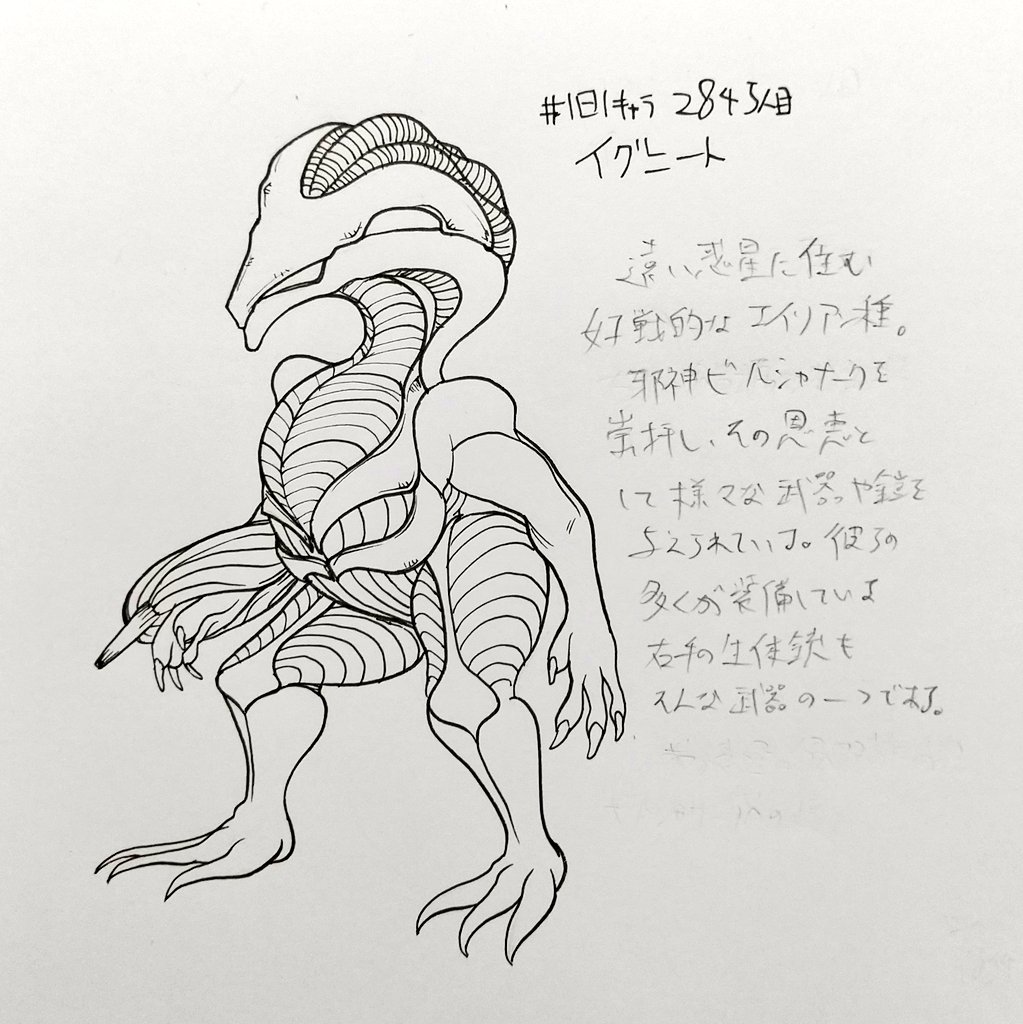 #1日1キャラ 2845人目
イグニート
遠い惑星に住む
好戦的なエイリアン種。
邪神ビルシャナークを
崇拝し、その恩恵と
して様々な武器や鎧を
与えられている。彼らの
多くが装備している
右手の生体銃も
そんな武器の一つである。